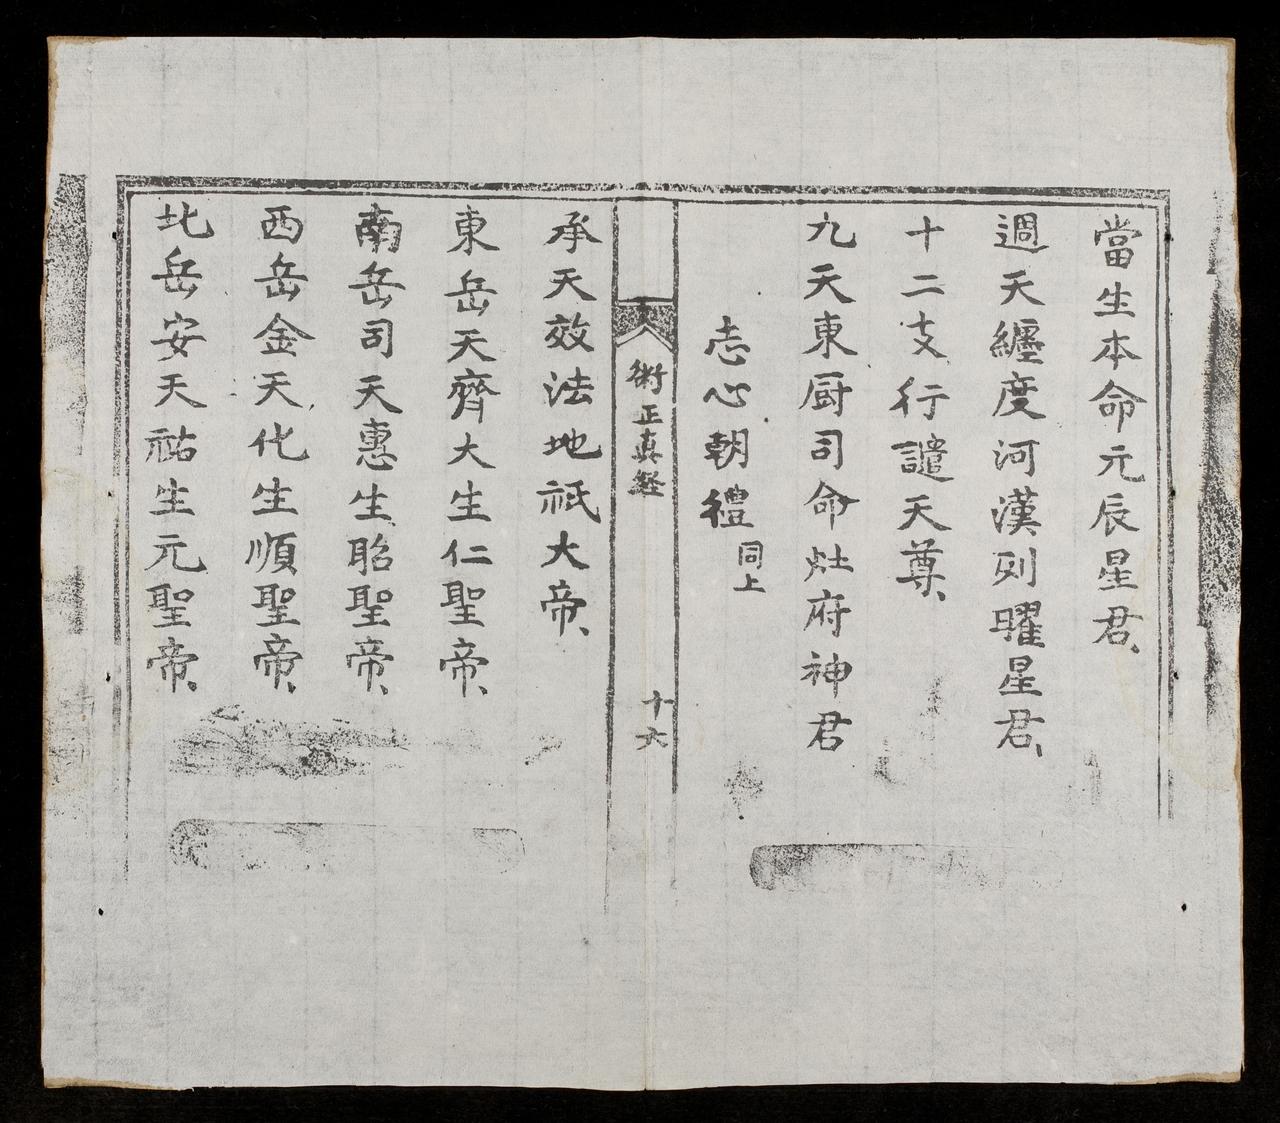 當生本命元辰星君、
週天纏度河漢列曜星君、
十二支行譴天尊、
九天東厨司命灶府神君
志心朝禮同上
術正真経
十六
承天效法地祇大帝、
東岳天齊大生仁聖帝、
南岳司天惠生昭聖帝、
西岳金天化生順聖帝、
北岳安天祐生元聖帝、